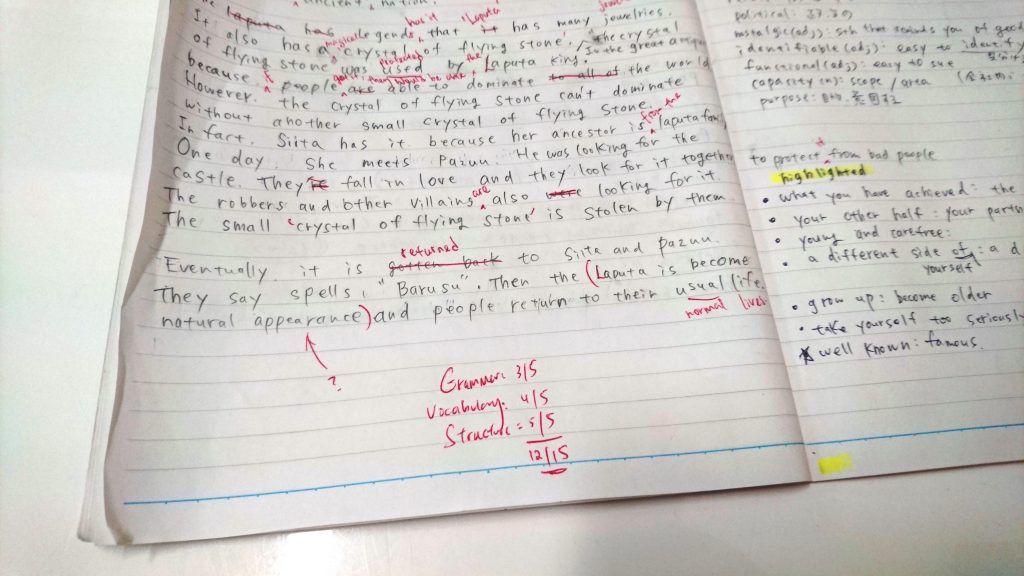 ancient nation.
It laputa has legends, that it has many jewelries.
has it "Laputa"
also has a 'crystal of flying stone'. The crystal
magical
of flying stone' was used by Laputa king,
protected the
because people are able to dominate to all of the world
However, the crystal of flying stone can't dominate
without another small crystal of flying stone.
In fact, Siita has it because her ancestor is laputa
from the
One day. She meets Pazuu. He was looking for the
castle. They fall in love and they look for it together
The robbers and other villains also were looking for it
are
The small 'crystal of flying stone' is stolen by them.
returned
Eventually it is gotten back to Siita and Pazuu.
They say spells, "Barusu". Then the (Laputa is become
natural appearance) and people return to their usual life.
normal lives
?
Grammar: 3/5
Vocabulary: 4/5
Structure = 5/5
12/15
political:
nostalgic(adj): sth that reminds you of good
identifiable (adj): easy to identify
functional(adj): easy to use
capacity (n): scope / area
purpose: 目的
it
to protect from bad people
highlighted
• what you have achieved: the
• your other half: your partn
• young and carefree:
• a different side of: a d
yourself
• grow up: become older
• take yourself too seriously
well known: famous.